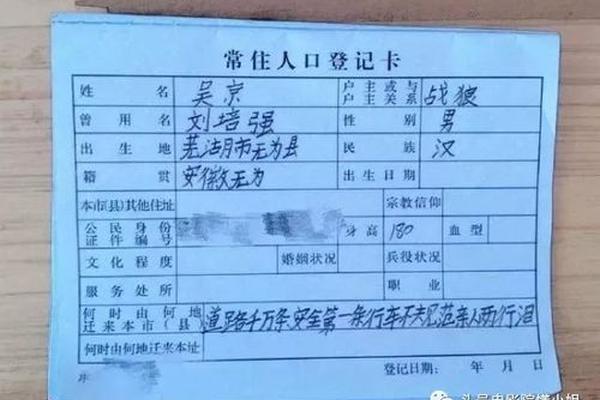 常住人口登记卡
姓名 吴京 户主或与户主关系 战狼
曾用名 刘培强 性别 男
出生地 芜沽月市无为县 民族 汉
籍贯 安徽无为 出生日期
本市(县)其他住址 宗教信仰
公民身份证件编号 身高 180 血型
文化程度 婚姻状况 兵役状况
服务处所 职业
何时由何地迁来本市(县) 道路千万条、安全第一条行车不规范亲人两行泪
何时由何地迁来本址
登记日期: 年 月 日